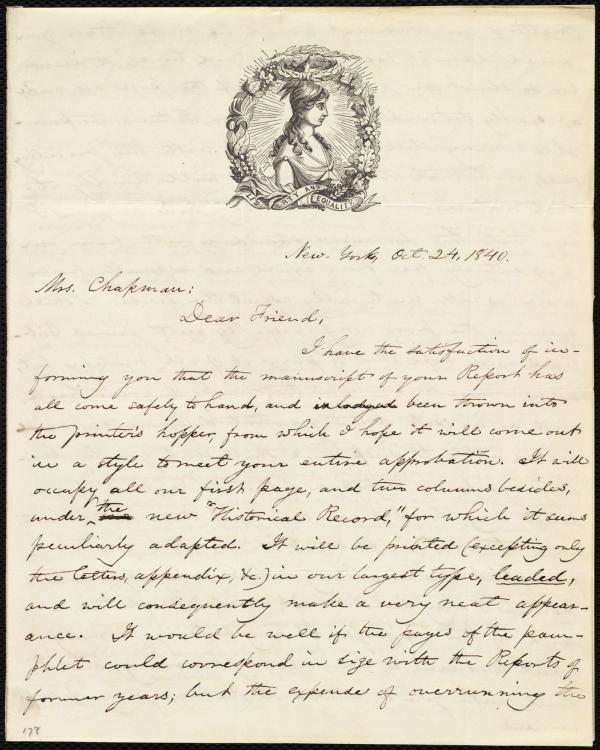 LIBERTY AND EQUALITY
New-York, Oct. 24, 1840.
Mrs. Chapman:
Dear Friend,
I have the satisfaction of in-
forming you that the manuscript of your Report has
all come safely to hand, and been thrown into
the printer's hopper, from which I hope it will come out
in a style to meet your entire approbation. It will
occupy all our first page, and two columns besides,
under the new "Historical Record," for which it seems
peculiarly adapted. It will be printed (excepting only
the letters, appendix, &c.) in our largest type, leaded,
and will consequently make a very neat appear-
ance. It would be well if the pages of the pam-
phlet could correspond in size with the Reports of
former years; but the expense of overrunning the
178